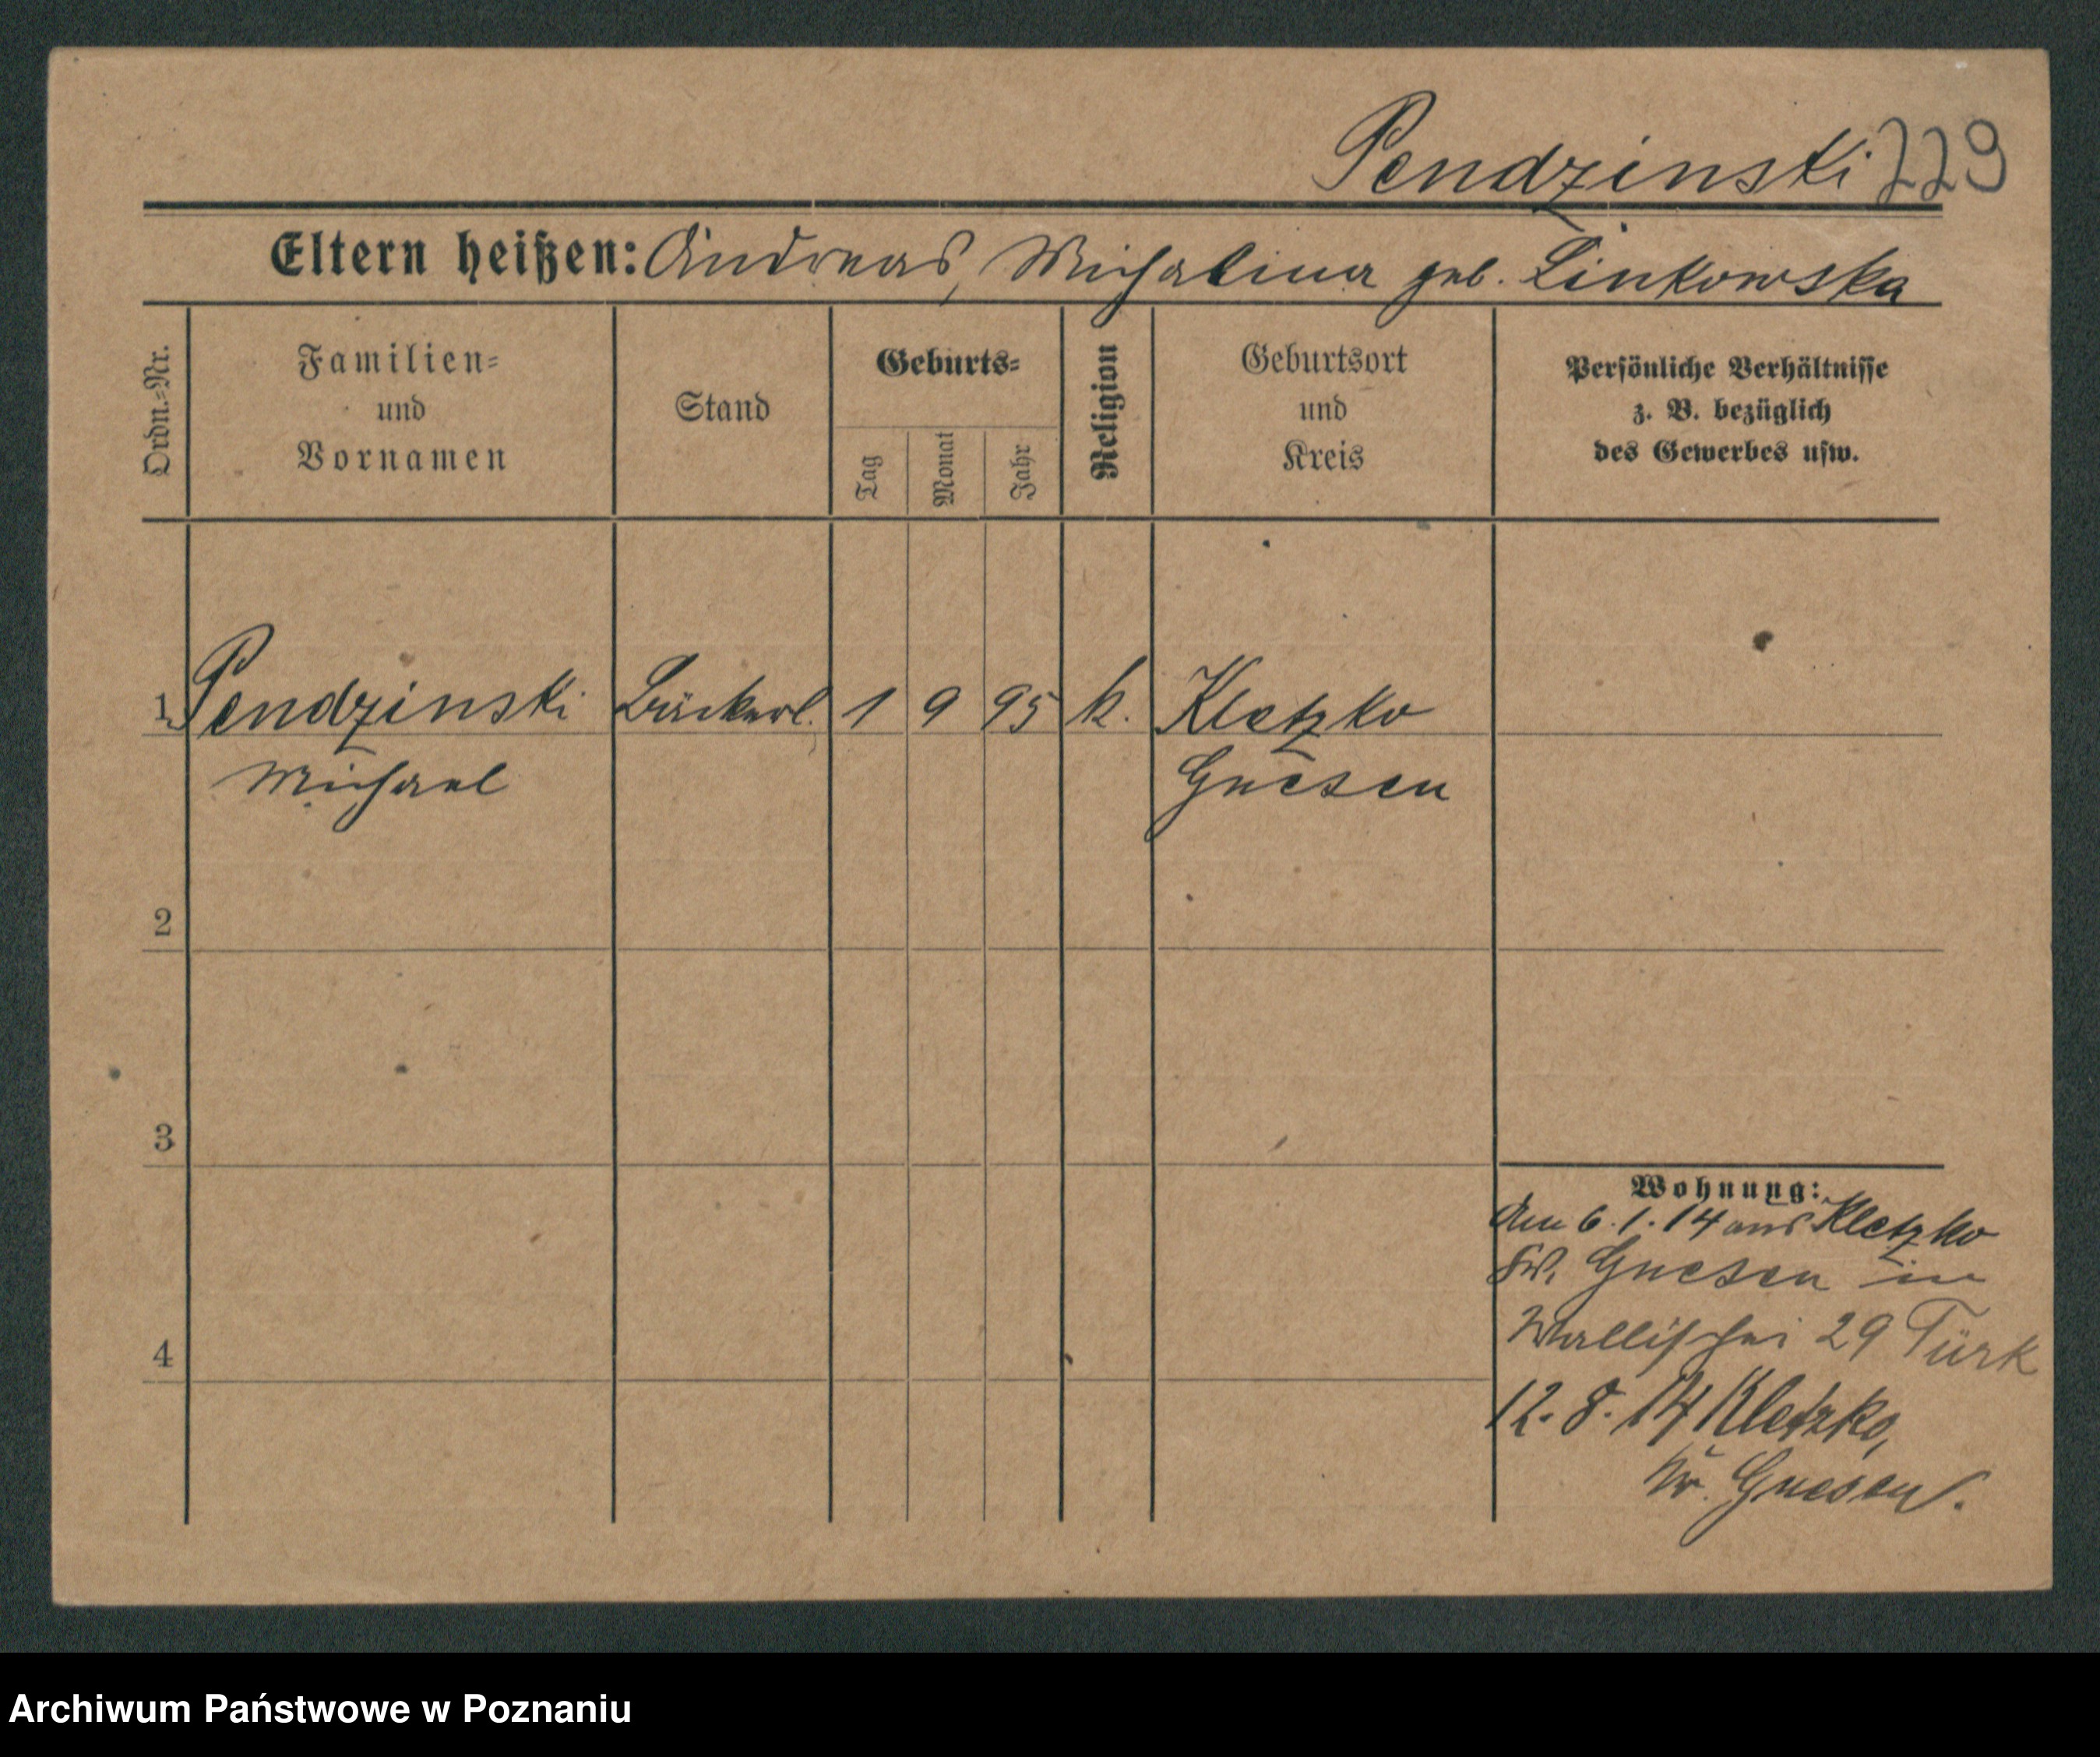 Pendzinski 229
Eltern heißen: Andreas, Michalina geb. Linkowska
Ordn.-Nr.
Familien-
und
Vornamen
Stand
Geburts-
Tag
Monat
Jahr
Religion
Geburtsort
und
Kreis
Persönliche Verhältnisse
z. B. bezüglich
des Gewerbes usw.
1 Pendzinski Bäckerl. 1 9 95 k. Kletzko
Michael Gnesen
2
3
4
Wohnung:
Am 6.1.14 aus Kletzko
Kr. Gnesen in
Wallischei 29 Türk
12.8.14 Kletzko,
Kr. Gnesen.
Archiwum Państwowe w Poznaniu